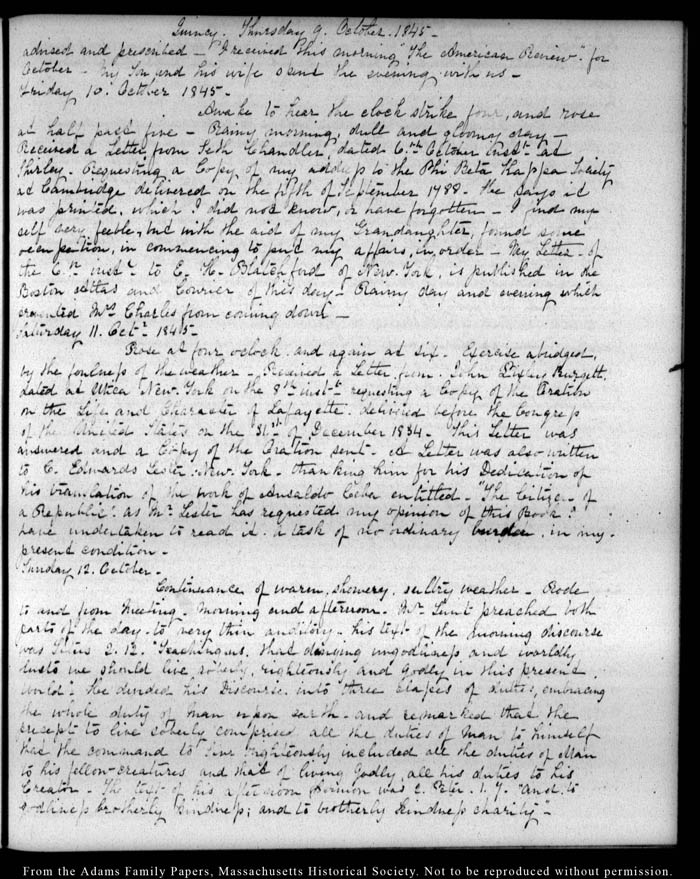 Quincy. Thursday 9. October. 1845 -
advised and prescribed - I received this morning "The American Review" for
October - My Son and his wife spent the evening with us -
Friday 10. October 1845 -
Awake to hear the clock strike four, and rose
at half past five - Rainy morning, dull and gloomy day -
Received a Letter from Seth Chandler, dated 6.th October inst.t at
Shirley. Requesting a Copy of my address to the Phi Beta Kappa Society
at Cambridge delivered on the fifth of September 1788. He says it
was printed, which I did not know, or have forgotten - I find my
self very feeble, but with the aid of my Grandaughter, found some
occupation, in commencing to put my affairs, in order - My Letter of
the 6.th inst.t to E. H. Blatchford of New-York, is published in the
Boston Atlas and Courier of this day - Rainy day and evening which
prevented Mrs Charles from coming down -
Saturday 11. Oct.r 1845 -
Rose at four oclock and again at six. Exercise abridged,
by the foulness of the weather - Received a Letter from John Burgett,
dated at Utica New-York on the 8.th inst.t requesting a Copy of the Oration
on the Life and Character of Lafayette delivered before the Congress
of the United States on the 31.st of December 1834 - This Letter was
answered and a Copy of the Oration sent - A Letter was also written
to C. Edwards Lester New-York - thanking him for his Dedication of
his translation of the work of Ansaldo Ceba entitled - "The Citizen of
a Republic": as Mr Lester has requested my opinion of this Book I
have undertaken to read it. a task of no ordinary burden, in my
present condition -
Sunday 12. October -
Continuance of warm, showery, sultry weather - Rode
to and from Meeting. Morning and afternoon. Mr Lunt preached both
parts of the day. to very thin auditory. his text of the morning discourse
was Titus 2. 12. Teaching us, that denying ungodliness and worldly
lusts we should live soberly, righteously and Godly in this present
world: He divided his Discourse into three classes of duties, embracing
the whole duty of Man upon earth - and remarked that the
precept to live soberly comprised all the duties of Man to himself
that the command to live righteously included all the duties of Man
to his fellow-creatures and that of living Godly, all his duties to his
Creator - The text of his afternoon Sermon was 2. Peter. 1. 7. "and to
godliness brotherly kindness; and to brotherly kindness charity" -
From the Adams Family Papers, Massachusetts Historical Society. Not to be reproduced without permission.